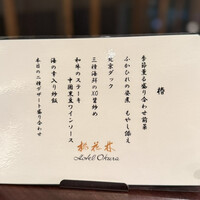 椿
季節薫る盛り合わせ前菜
ふかひれの姿煮 もやし添え
北京ダック
三種海鮮のXO醤炒め
和牛のステーキ
中国黒豆ワインソース
海の幸入り炒飯
本日の二種デザート盛り合わせ
桃花林
Hotel Okura